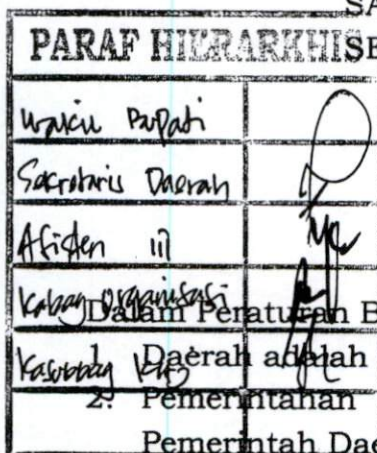 SA
PARAF HIERARKHIS
Wakil Bupati
Sekretaris Daerah
Asisten III
Kabag organisasi
Dalam Peraturan B
Kasubbag
1. Daerah adalah
2. Pemerintahan
Pemerintah Dae